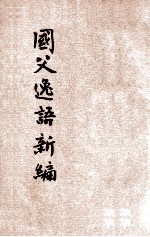 國父逸語新編